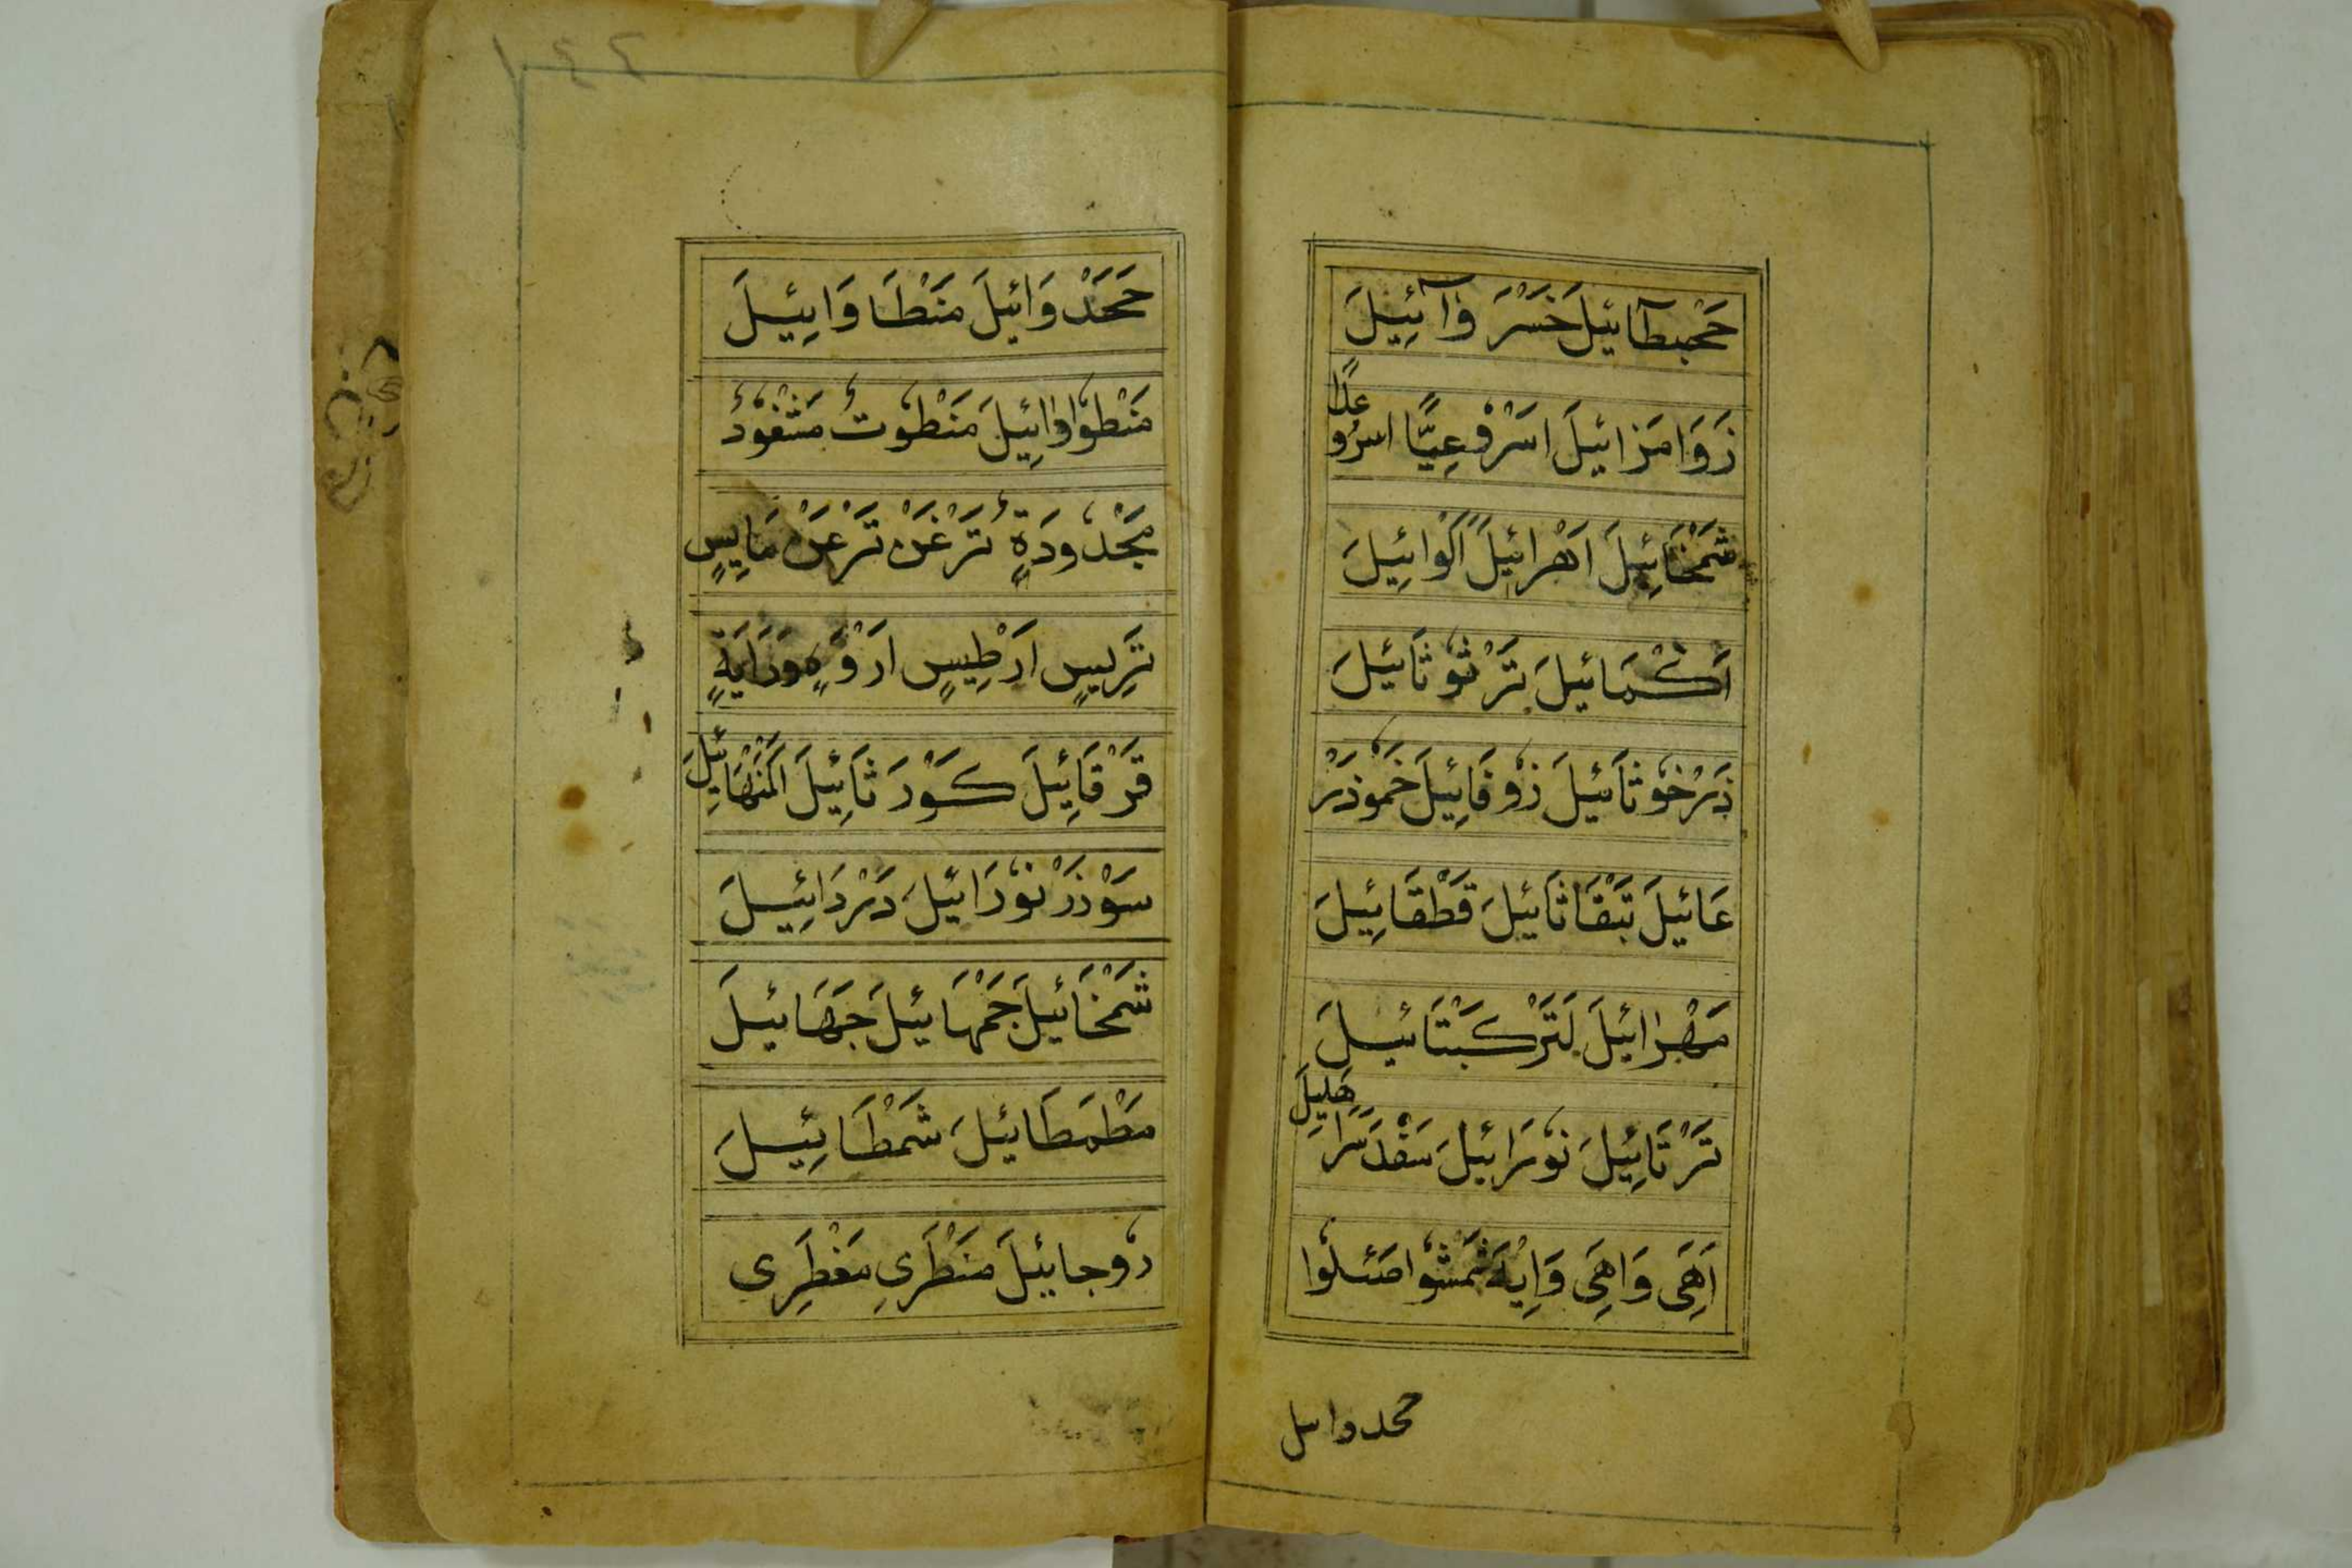 حَجْبطآئيلَ خَسْرَ وَآئِيلَ
زَوَا مَزائيلَ اسَرْفْعِيًّا اسرُو
عدًا
شَمْخَائِيلَ اَهْرائيلَ اَلْوائِيلَ
اَكْمَائيلَ تَرْثوُثَائيلَ
ذَرْخوُثَائيلَ زوُقَائِيلَ خَموُذَرْ
عَائيلَ تَبْقَاثَائيلَ قَطْقَائِيلَ
مَهْرائيلَ لَتَرْكَبْتَائيلَ
تَرْتَائِيلَ نوُرَائيلَ سَقْدَسَرَا
هَليلَ
اَهِىَ وَاهِىَ وَايْهَ شَمْشوُا صَئلوُا
حمدوايل
حَمَدْ وَائيلَ مَنْطَا وَائِيلَ
مَنْطوُاوَائِيلَ مَنْطوُتُ مَشْغوُدُ
مَجْدوُدَةٍ تَرْغَنْ تَرْعَنْ مَايِسٍ
تَرِيسٍ اَرْطِيسٍ ارَوْهٍ وَرَايَةٍ
قَرْقَائِيلَ كَوْرَثَائِيلَ اَلْمَنْهَائِيلَ
سَوْذَرْنوُرَائيلَ دَرْدَائِيلَ
شَمْخَائيلَ جَمْهَائيلَ جَهَائيلَ
مَطْمَطَائيلَ شَمْطَائِيلَ
دوُجائيلَ مَنْطَرِىِ مَغْطَرِى
١٤٤